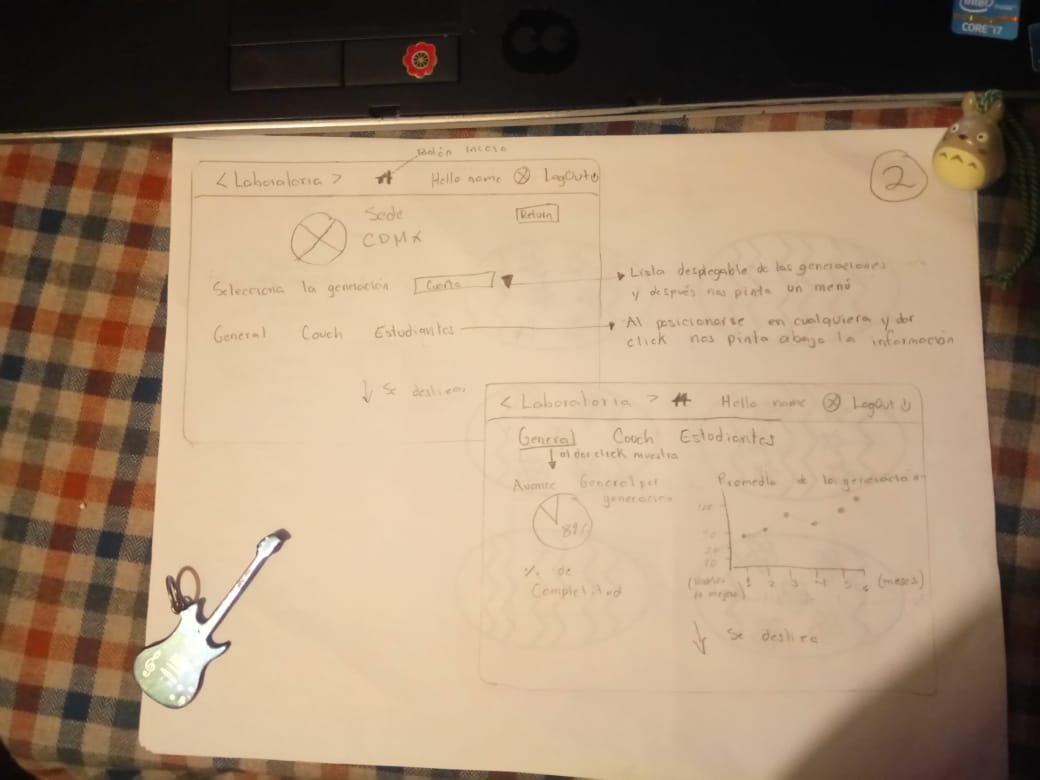 intel
CORE i7
Botón inicio
2
< Laboratoria >
Hello name
LogOut
Sede
CDMX
Return
Selecciona la generación
Cuarta
Lista desplegable de las generaciones
y después nos pinta un menú
General Couch Estudiantes
Al posicionarse en cualquiera y dar
click nos pinta abajo la información
Se desliza
< Laboratoria >
Hello name
LogOut
General Couch Estudiantes
al dar click muestra
Avance General por
generación
8%
% de
Completitud
Promedio de la generación
100
20
10
1 2 3 4 5 6 (meses)
Se desliza